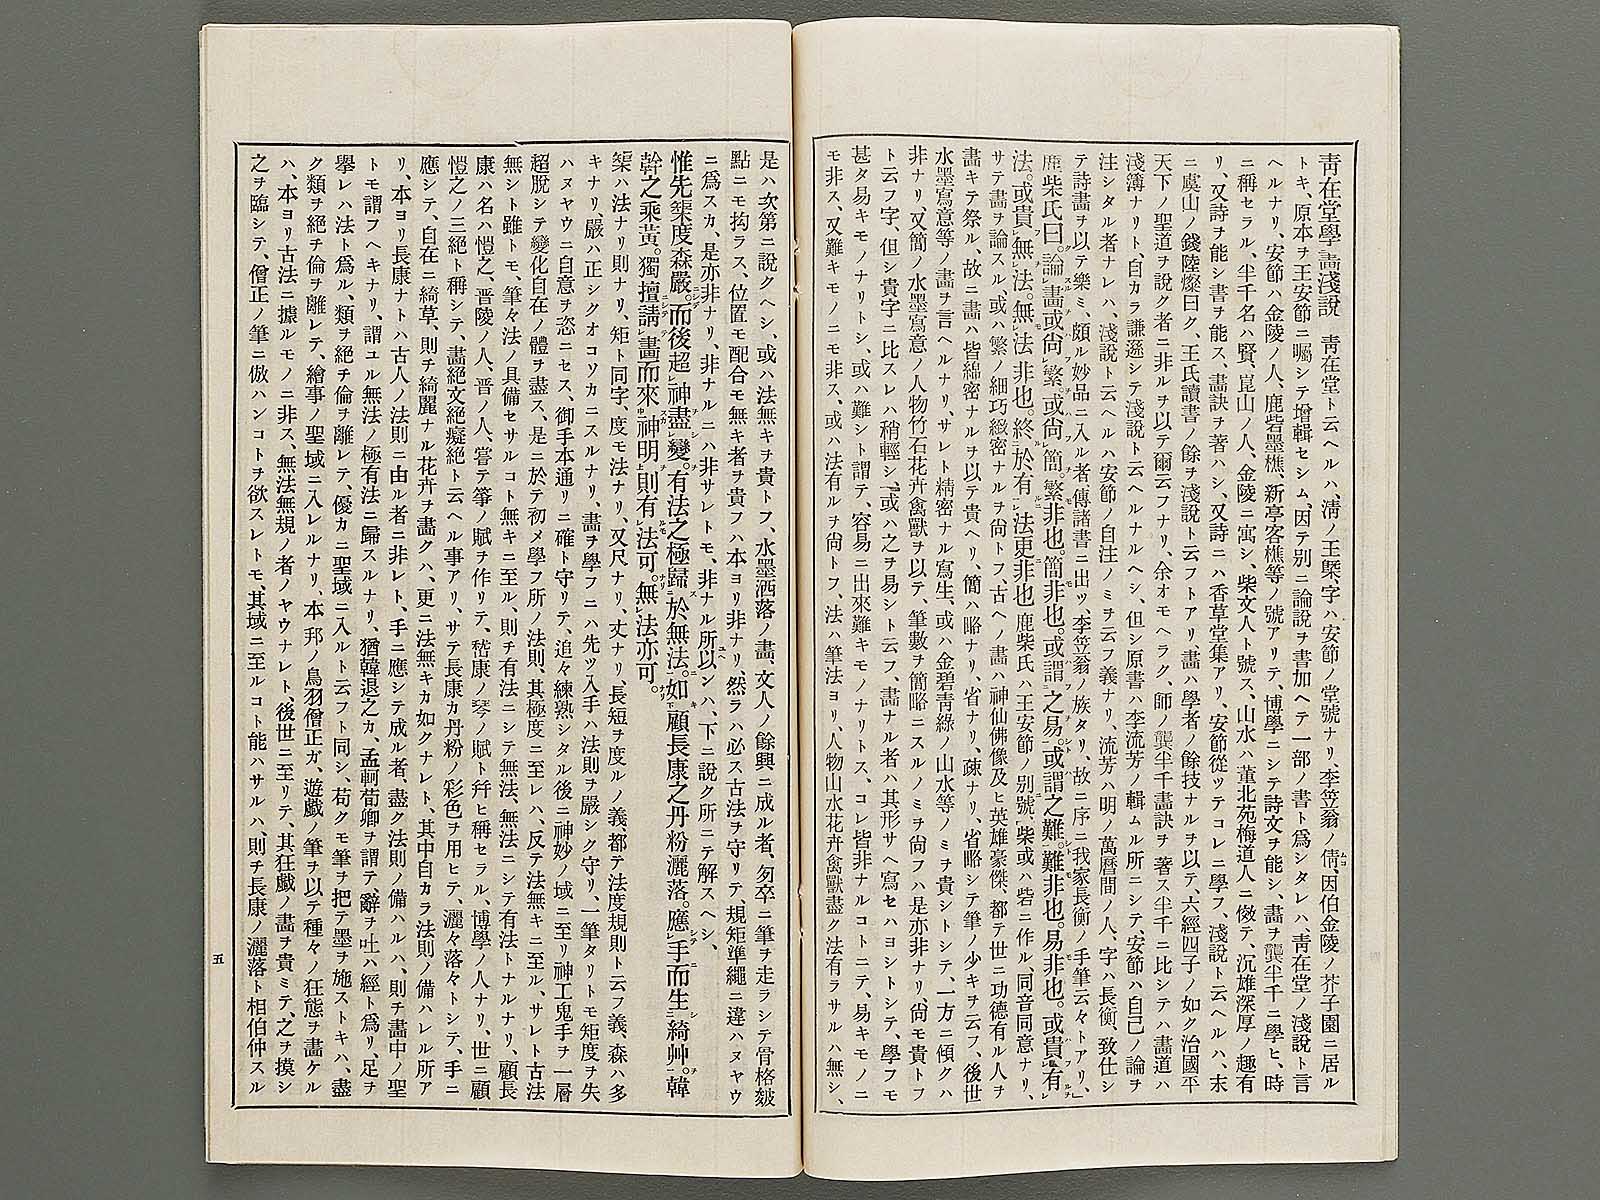 靑在堂學畵淺說　靑在堂ト云ヘルハ、淸ノ王槩、字ハ安節ノ堂號ナリ、李笠翁ノ倩、因伯金陵ノ芥子園ニ居ル
トキ、原本ヲ王安節ニ囑シテ增輯セシム、因テ別ニ論說ヲ書加ヘテ一部ノ書ト爲シタレハ、靑在堂ノ淺說ト言
ヘルナリ、安節ハ金陵ノ人、鹿砦墨樵、新亭客樵等ノ號アリテ、博學ニシテ詩文ヲ能シ、畵ヲ龔半千ニ學ヒ、時
ニ稱セラル、半千名ハ賢、崑山ノ人、金陵ニ寓シ、柴丈人ト號ス、山水ハ董北苑梅道人ニ倣テ、沉雄深厚ノ趣有
リ、又詩ヲ能シ書ヲ能ス、畵訣ヲ著ハシ、又詩ニハ香草堂集アリ、安節從ツテコレニ學フ、淺說ト云ヘルハ、末
ニ虞山ノ錢陸燦曰ク、王氏讀書ノ餘ヲ淺說ト云フトアリ畵ハ學者ノ餘技ナルヲ以テ、六經四子ノ如ク治國平
天下ノ聖道ヲ說ク者ニ非ルヲ以テ爾云フナリ、余オモヘラク、師ノ龔半千畵訣ヲ著ス半千ニ比シテハ畵道ハ
淺簿ナリト、自カラ謙遜シテ淺說ト云ヘルナルヘシ、但シ原書ハ李流芳ノ輯ムル所ニシテ、安節ハ自己ノ論ヲ
注シタル者ナレハ、淺說ト云ヘルハ安節ノ自注ノミヲ云フ義ナリ、流芳ハ明ノ萬曆間ノ人、字ハ長蘅、致仕シ
テ詩畵ヲ以テ樂ミ、頗ル妙品ニ入ル者、傳諸書ニ出ツ、李笠翁ノ族タリ、故ニ序ニ我家長蘅ノ手筆云々トアリ、
鹿柴氏曰。論畵或尙繁。或尙簡。繁非也。簡非也。或謂之易。或謂之難。難非也。易非也。或貴有
法。或貴無法。無法非也。終於有法更非也　鹿柴氏ハ王安節ノ別號、柴或ハ砦ニ作ル、同音同意ナリ、
サテ畵ヲ論スル、或ハ繁ノ細巧緻密ナルヲ尙トフ、古ヘノ畵ハ神仙佛像及ヒ英雄豪傑、都テ世ニ功德有ル人ヲ
畵キテ祭ル、故ニ畵ハ皆綿密ナルヲ以テ貴ヘリ、簡ハ略ナリ、省ナリ、疎ナリ、省略シテ筆ノ少キヲ云フ、後世
水墨寫意等ノ畵ヲ言ヘルナリ、サレト精密ナル寫生、或ハ金碧靑綠ノ山水等ノミヲ貴シトシテ、一方ニ傾クハ
非ナリ、又簡ノ水墨寫意ノ人物竹石花卉禽獸ヲ以テ、筆數ヲ簡略ニスルノミヲ尙フハ是亦非ナリ、尙モ貴トフ
ト云フ字、但シ貴字ニ比スレハ稍輕シ、或ハ之ヲ易シト云フ、畵ナル者ハ其形サヘ寫セハヨシトシテ、學フモ
甚タ易キモノナリトシ、或ハ難シト謂テ、容易ニ出來難キモノナリトス、コレ皆非ナルコトニテ、易キモノニ
モ非ス、又難キモノニモ非ス、或ハ法有ルヲ尙トフ、法ハ筆法ヨリ、人物山水花卉禽獸盡ク法有ラサルハ無シ、
是ハ次第ニ說クヘシ、或ハ法無キヲ貴トフ、水墨洒落ノ畵、文人ノ餘興ニ成ル者、匆卒ニ筆ヲ走ラシテ骨格皴
點ニモ拘ラス、位置モ配合モ無キ者ヲ貴フハ本ヨリ非ナリ、然ラハ必ス古法ヲ守リテ、規矩準繩ニ違ハヌヤウ
ニ爲スカ、是亦非ナリ、非ナルニハ非サレトモ、非ナル所以ンハ、下ニ說ク所ニテ解スヘシ、
惟先榘度森嚴。而後超神盡變。有法之極歸於無法。如顧長康之丹粉灑落。應手而生綺艸。韓
幹之乘黃。獨擅請畫而來神明。則有法可。無法亦可。
榘ハ法ナリ則ナリ、矩ト同字、度モ法ナリ、又尺ナリ、丈ナリ、長短ヲ度ルノ義、都テ法度規則ト云フ義、森ハ多
キナリ嚴ハ正シクオコソカニスルナリ、畵ヲ學フニハ先ツ入手ハ法則ヲ嚴シク守リ、一筆タリトモ矩度ヲ失
ハヌヤウニ自意ヲ恣ニセス、御手本通リニ確ト守リテ、追々練熟シタル後ニ神妙ノ域ニ至リ神工鬼手ヲ一層
超脫シテ變化自在ノ體ヲ盡ス、是ニ於テ初メ學フ所ノ法則、其極度ニ至レハ、反テ法無キニ至ル、サレト古法
無シト雖トモ、筆々法ノ具備セサルコト無キニ至ル、則チ有法ニシテ無法、無法ニシテ有法トナルナリ、顧長
康ハ名ハ愷之、晋陵ノ人、晋ノ人、嘗テ箏ノ賦ヲ作リテ、嵇康ノ琴ノ賦ト幷ヒ稱セラル、博學ノ人ナリ、世ニ顧
愷之ノ三絕ト稱シテ、畵絕文絕癡絕ト云ヘル事アリ、サテ長康カ丹粉ノ彩色ヲ用ヒテ、灑々落々トシテ、手ニ
應シテ、自在ニ綺草、則チ綺麗ナル花卉ヲ畵クハ、更ニ法無キカ如クナレト、其中自カラ法則ノ備ハレル所ア
リ、本ヨリ長康ナトハ古人ノ法則ニ由ル者ニ非レト、手ニ應シテ成ル者、盡ク法則ノ備ハルハ、則チ畵中ノ聖
トモ謂フヘキナリ、謂ユル無法ノ極有法ニ歸スルナリ、猶韓退之カ、孟軻荀卿ヲ謂テ、辭ヲ吐ハ經ト爲リ、足ヲ
擧レハ法ト爲ル、類ヲ絕チ倫ヲ離レテ、優カニ聖域ニ入ルト云フト同シ、苟クモ筆ヲ把テ墨ヲ施ストキハ、盡
ク類ヲ絕チ倫ヲ離レテ、繪事ノ聖域ニ入レルナリ、本邦ノ鳥羽僧正ガ、遊戲ノ筆ヲ以テ種々ノ狂態ヲ畵ケル
ハ、本ヨリ古法ニ據ルモノニ非ス、無法無規ノ者ノヤウナレト、後世ニ至リテ、其狂戲ノ畵ヲ貴ミテ、之ヲ摸シ
之ヲ臨シテ、僧正ノ筆ニ倣ハンコトヲ欲スレトモ、其域ニ至ルコト能ハサルハ、則チ長康ノ灑落ト相伯仲スル
五